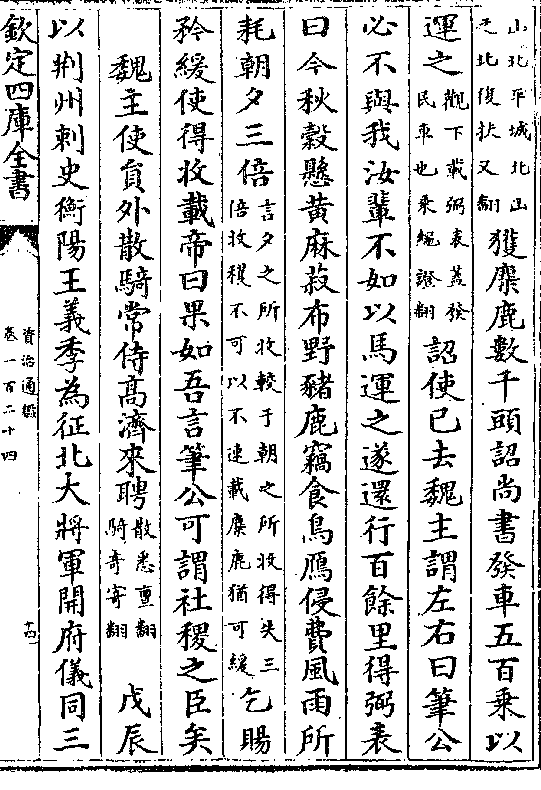 山北平城北山
之北復扶又翻
獲麋鹿數千頭詔尚書發車五百乘以
運之
觀下載弼表蓋發
民車也乘繩證翻
詔使已去魏主謂左右曰筆公
必不與我汝輩不如以馬運之遂還行百餘里得弼表
曰今秋穀懸黄麻菽布野豬鹿竊食鳥鴈侵費風雨所
耗朝夕三倍
言夕之所收較于朝之所收得失三
倍收穫不可以不速載麋鹿猶可緩
乞賜
矜緩使得收載帝曰果如吾言筆公可謂社稷之臣矣
魏主使員外散騎常侍髙濟來聘
散悉亶翻
騎奇寄翻
戊辰
以荆州刺史衡陽王義季為征北大將軍開府儀同三
欽定四庫全書
資治通鑑
卷一百二十四